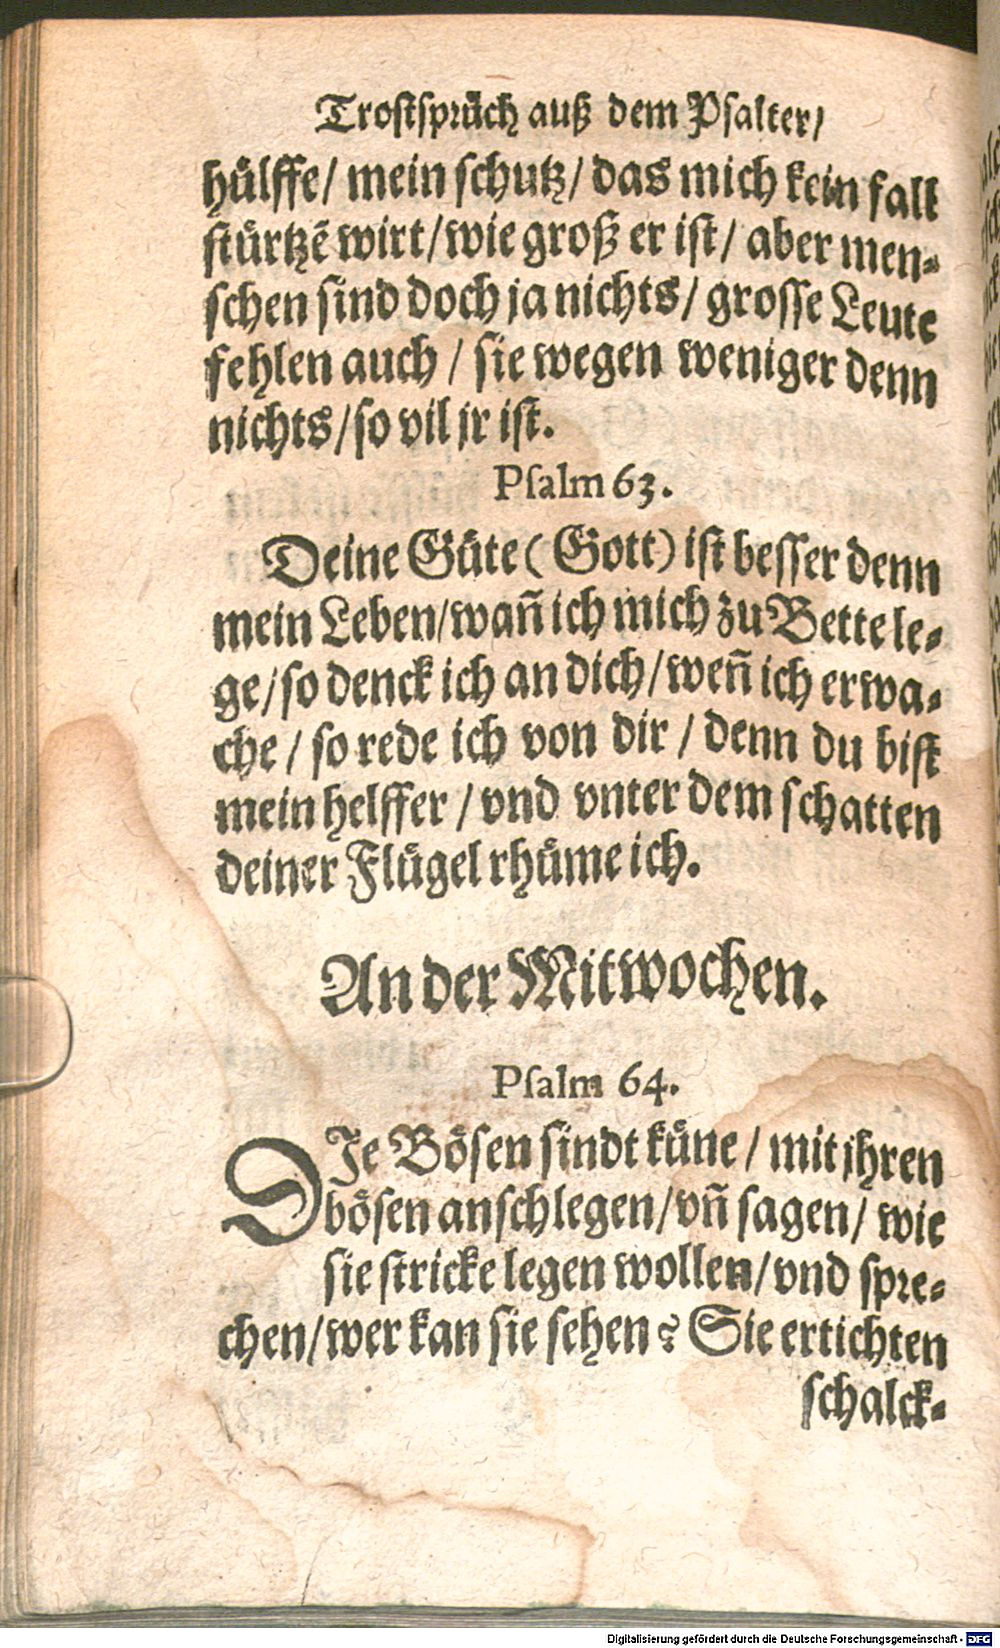 Trostsprüch auß dem Psalter/
hülffe/ mein schutz/ das mich kein fall
stürtzẽ wirt/wie groß er ist/ aber men-
schen sind doch ja nichts/ grosse Leute
fehlen auch / sie wegen weniger denn
nichts/so vil jr ist.
Psalm 63.
Deine Güte( Gott) ist besser denn
mein Leben/wañ ich mich zu Bette le-
ge/so denck ich an dich/weñ ich erwa-
che / so rede ich von dir / denn du bist
mein helffer / vnd vnter dem schatten
deiner Flügel rhüme ich.
An der Mitwochen.
Psalm 64.
DJe Bösen sindt küne / mit jhren
bösen anschlegen/vñ sagen/ wie
sie stricke legen wollen/vnd spre-
chen/wer kan sie sehen? Sie ertichten
schalck-
Digitalisierung gefördert durch die Deutsche Forschungsgemeinschaft - DFG